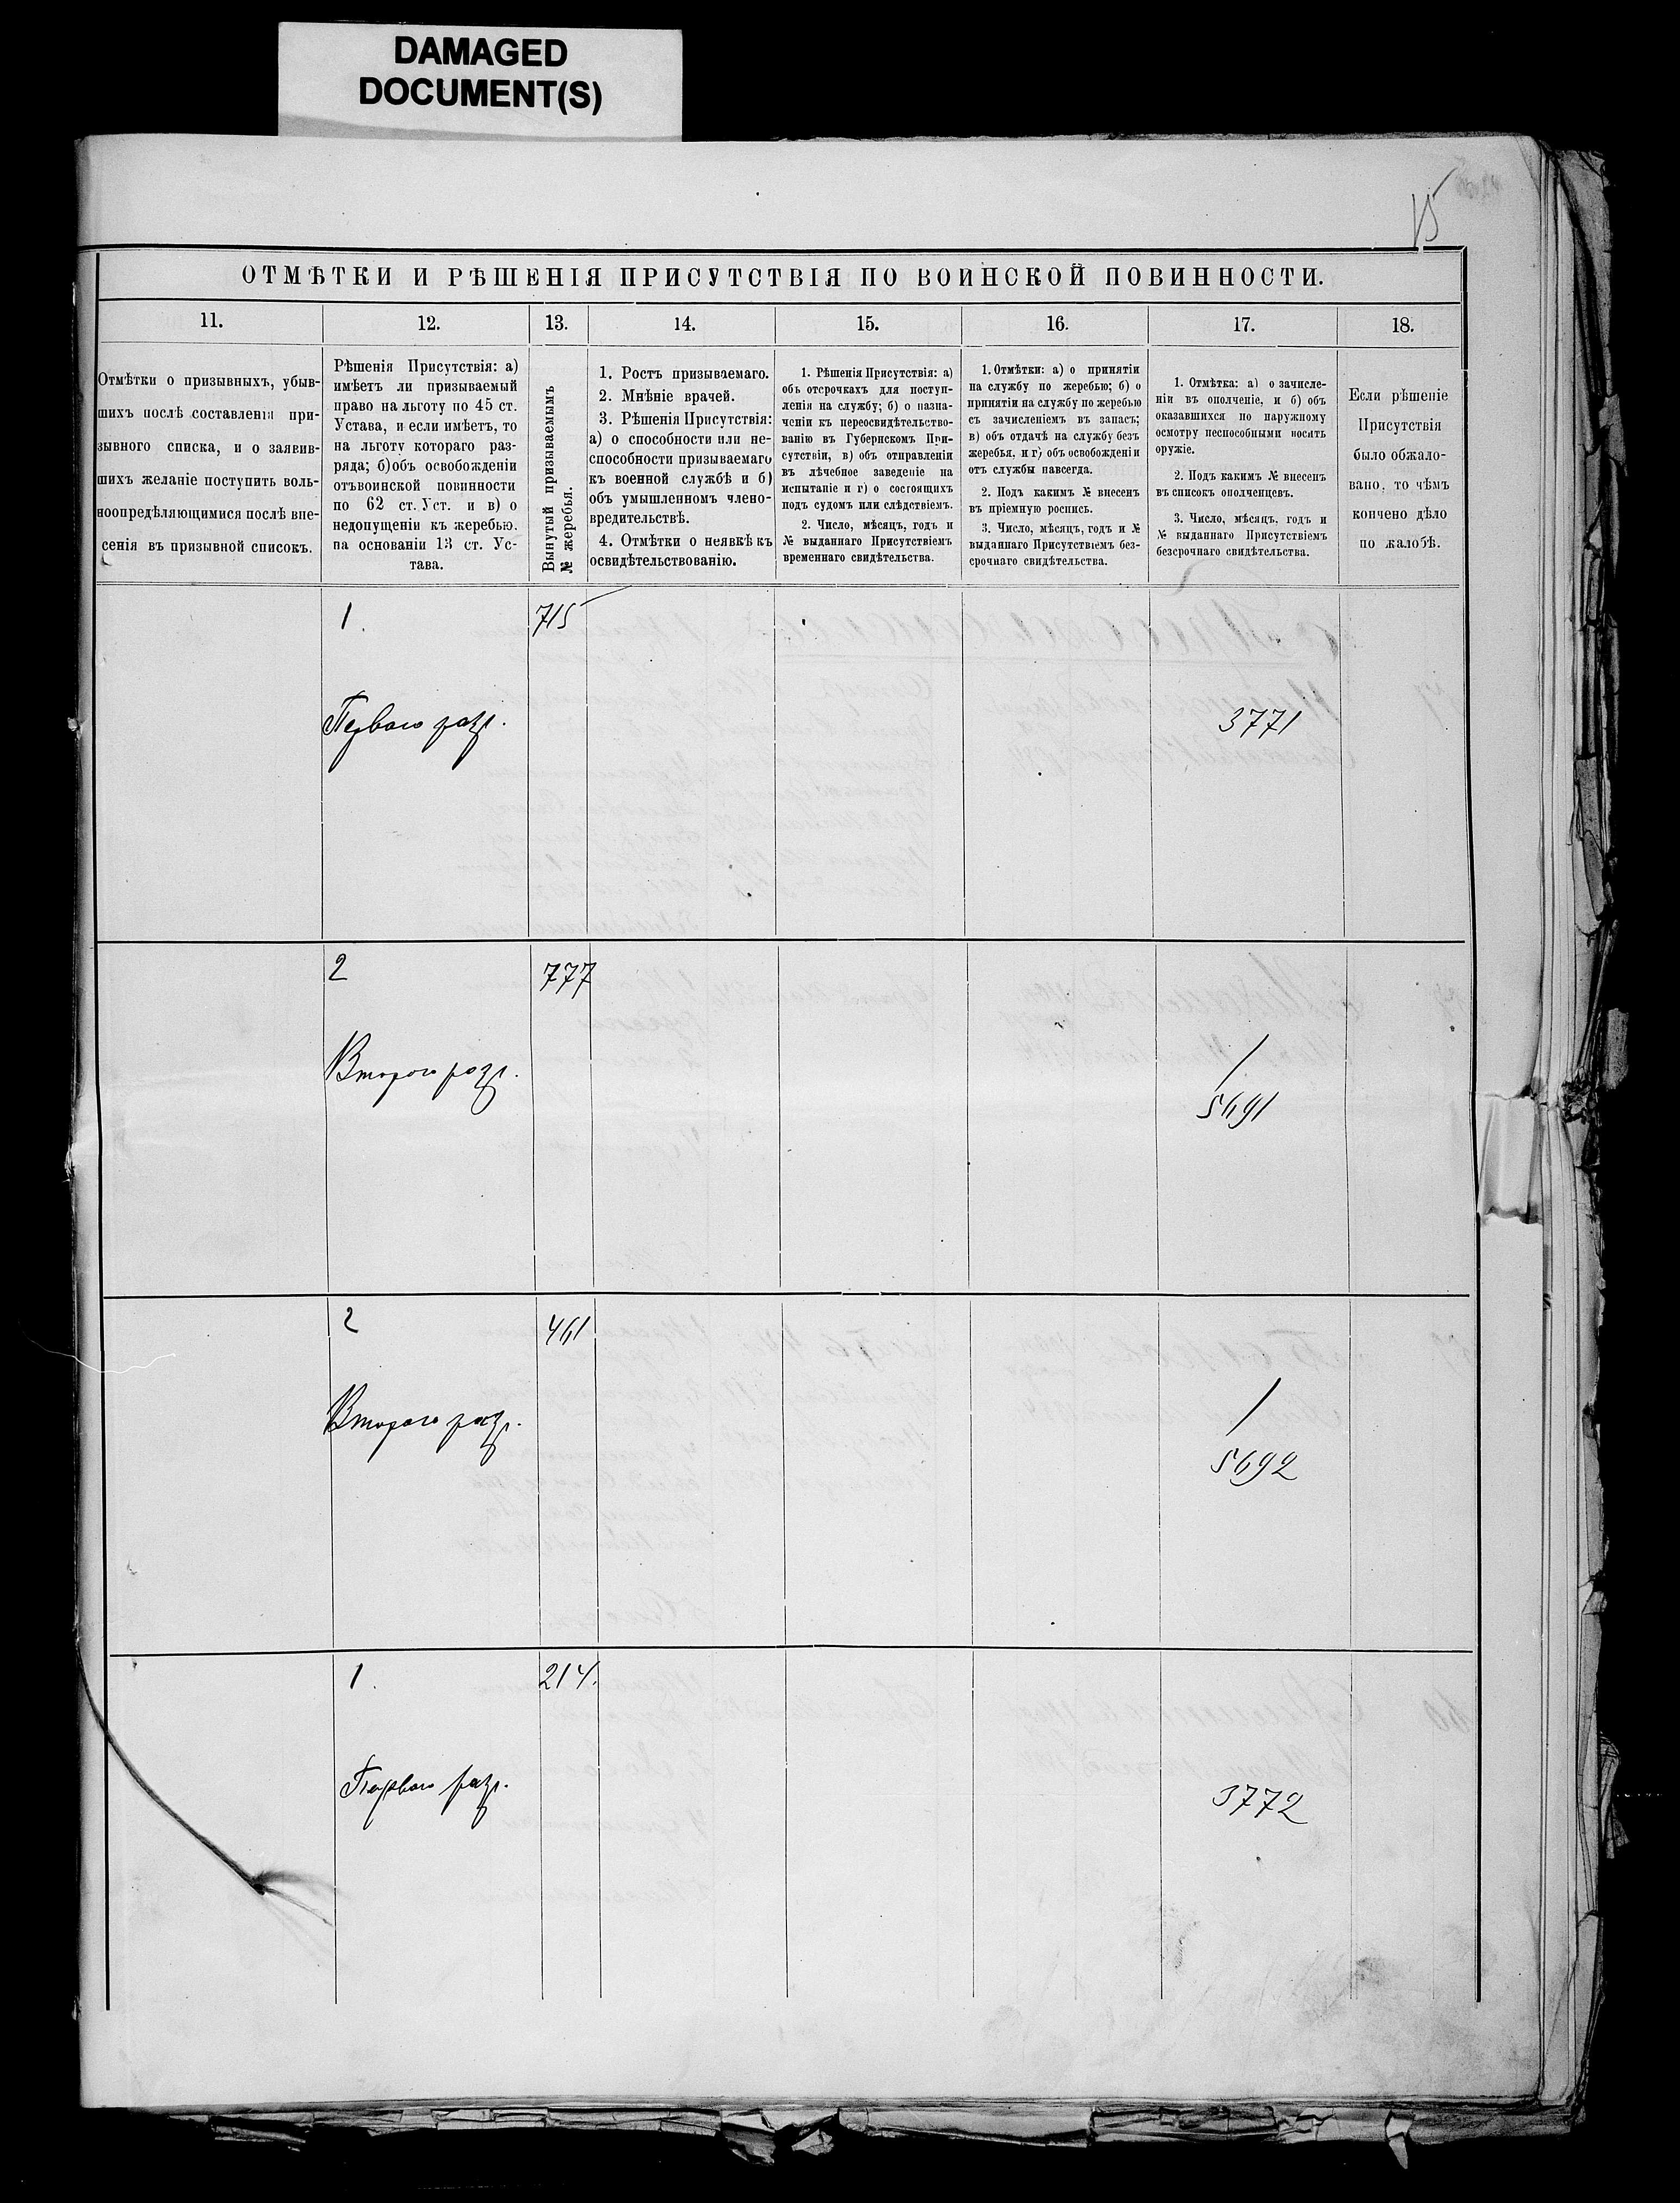 DAMAGED
DOCUMENT(S)
15
ОТМѢТКИ И РѢШЕНІЯ ПРИСУТСТВІЯ ПО ВОИНСКОЙ ПОВИННОСТИ.
11.
12.
13.
14.
15.
16.
17.
18.
Отмѣтки о призывныхъ, убыв-
шихъ послѣ составленія при-
зывного списка, и о заявив-
шихъ желаніе поступить воль-
ноопредѣляющимися послѣ вне-
сенія въ призывной списокъ.
Рѣшенія Присутствія: а)
имѣетъ ли призываемый
право на льготу по 45 ст.
Устава, и если имѣетъ, то
на льготу котораго раз-
ряда; б) объ освобожденіи
отъ воинской повинности
по 62 ст. Уст. и в) о
недопущеніи къ жеребью.
на основаніи 13 ст. Ус-
тава.
Вынутый призываемымъ
№ жеребья.
1. Ростъ призываемаго.
2. Мнѣніе врачей.
3. Рѣшенія Присутствія:
а) о способности или не-
способности призываемаго
къ военной службѣ и б)
объ умышленномъ члено-
вредительствѣ.
4. Отмѣтки о неявкѣ къ
освидѣтельствованію.
1. Рѣшенія Присутствія: а)
объ отсрочкахъ для поступ-
ленія на службу; б) о назна-
ченіи къ переосвидѣтельство-
ванію въ Губернскомъ При-
сутствіи, в) объ отправленіи
въ лѣчебное заведеніе на
испытаніе и г) о состоящихъ
подъ судомъ или слѣдствіемъ.
2. Число, мѣсяцъ, годъ и
№ выданнаго Присутствіемъ
временнаго свидѣтельства.
1. Отмѣтки: а) о принятіи
на службу по жеребью; б) о
принятіи на службу по жеребью
съ зачисленіемъ въ запасъ;
в) объ отдачѣ на службу безъ
жеребья, и г) объ освобожденіи
отъ службы навсегда.
2. Подъ какимъ № внесенъ
въ пріемную роспись.
3. Число, мѣсяцъ, годъ и №
выданнаго Присутствіемъ без-
срочнаго свидѣтельства.
1. Отмѣтка: а) о зачисле-
ніи въ ополченіе, и б) объ
оказавшихся по наружному
осмотру неспособными носить
оружіе.
2. Подъ какимъ № внесенъ
въ списокъ ополченцевъ.
3. Число, мѣсяцъ, годъ и
№ выданнаго Присутствіемъ
безсрочнаго свидѣтельства.
Если рѣшеніе
Присутствія
было обжало-
вано, то чѣмъ
кончено дѣло
по жалобѣ.
1.
715
Перваго разр.
3771
2
777
Второго разр.
1
5691
2
461
Второго разр.
1
5692
1.
214.
Перваго разр.
3772